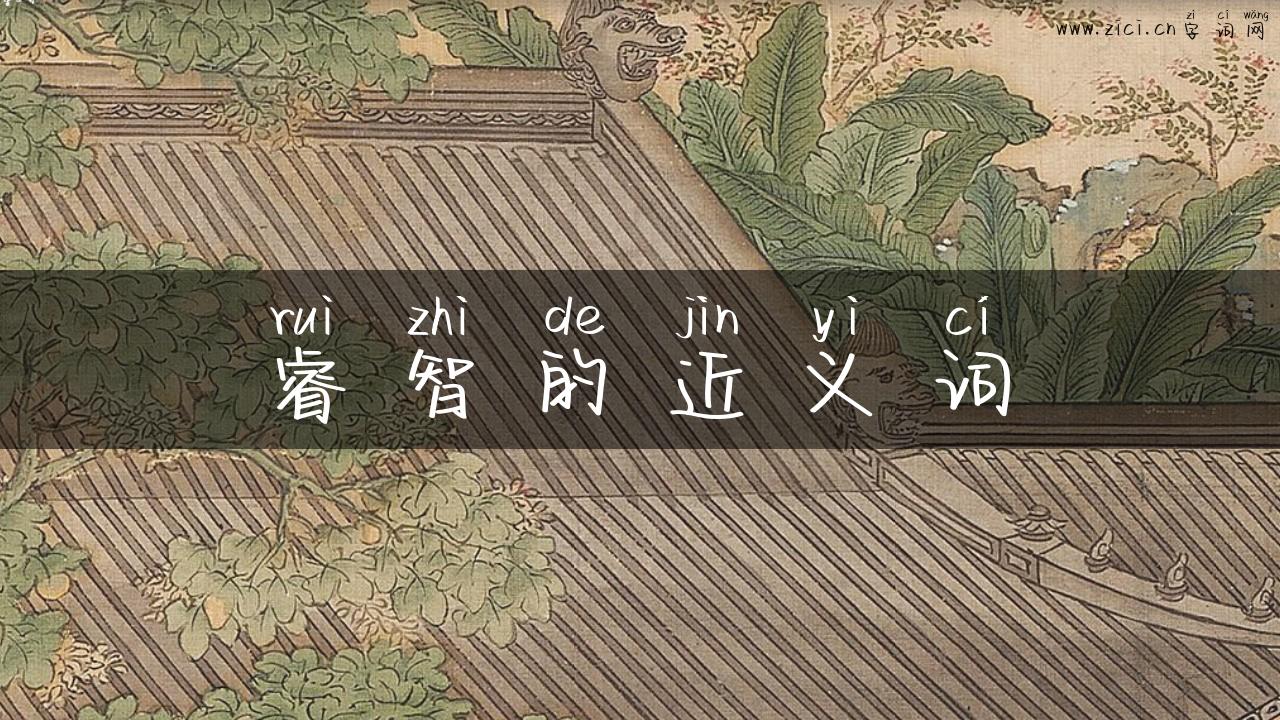 zì cí wǎng
www.zici.cn 字词网
ruì zhì de jìn yì cí
睿智的近义词